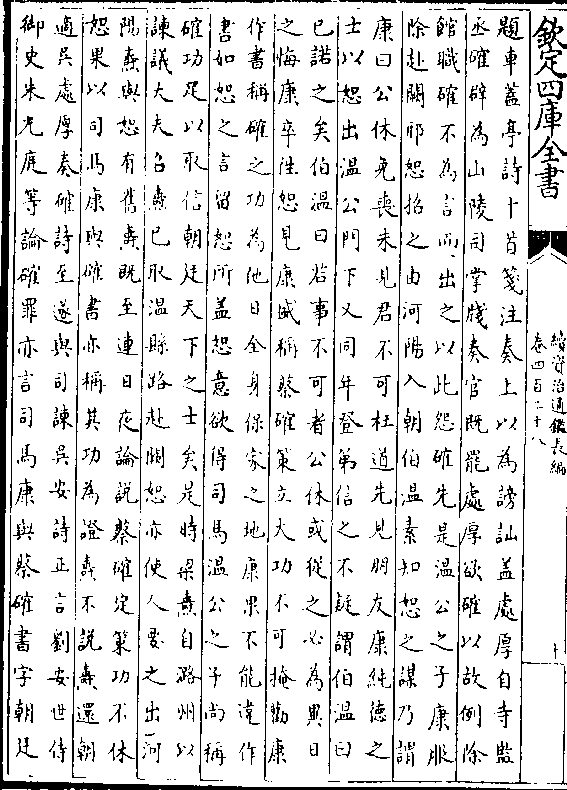 欽定四庫全書
續資治通鑑長編
卷四百二十八
題車蓋亭詩十首箋注奏上以為謗訕蓋處厚自寺監
丞確辟為山陵司掌牋奏官既罷處厚欲確以故例除
館職確不為言而出之以此怨確先是溫公之子康服
除赴闕邢恕招之由河陽入朝伯溫素知恕之謀乃謂
康曰公休免喪未見君不可枉道先見朋友康純德之
士以恕出溫公門下又同年登第信之不疑謂伯溫曰
已諾之矣伯溫曰若事不可者公休或從之必為異日
之悔康卒往恕見康盛稱蔡確策立大功不可掩勸康
作書稱確之功為他日全身保家之地康果不能違作
書如恕之言留恕所蓋恕意欲得司馬溫公之子尚稱
確功足以取信朝廷天下之士矣是時梁燾自潞州以
諫議大夫召燾已取溫縣路赴闕恕亦使人要之出河
陽燾與恕有舊燾既至連日夜論說蔡確定策功不休
恕果以司馬康與確書亦稱其功為證燾不說燾還朝
適吳處厚奏確詩至遂與司諫吳安詩正言劉安世侍
御史朱光庭等論確罪亦言司馬康與蔡確書字朝廷